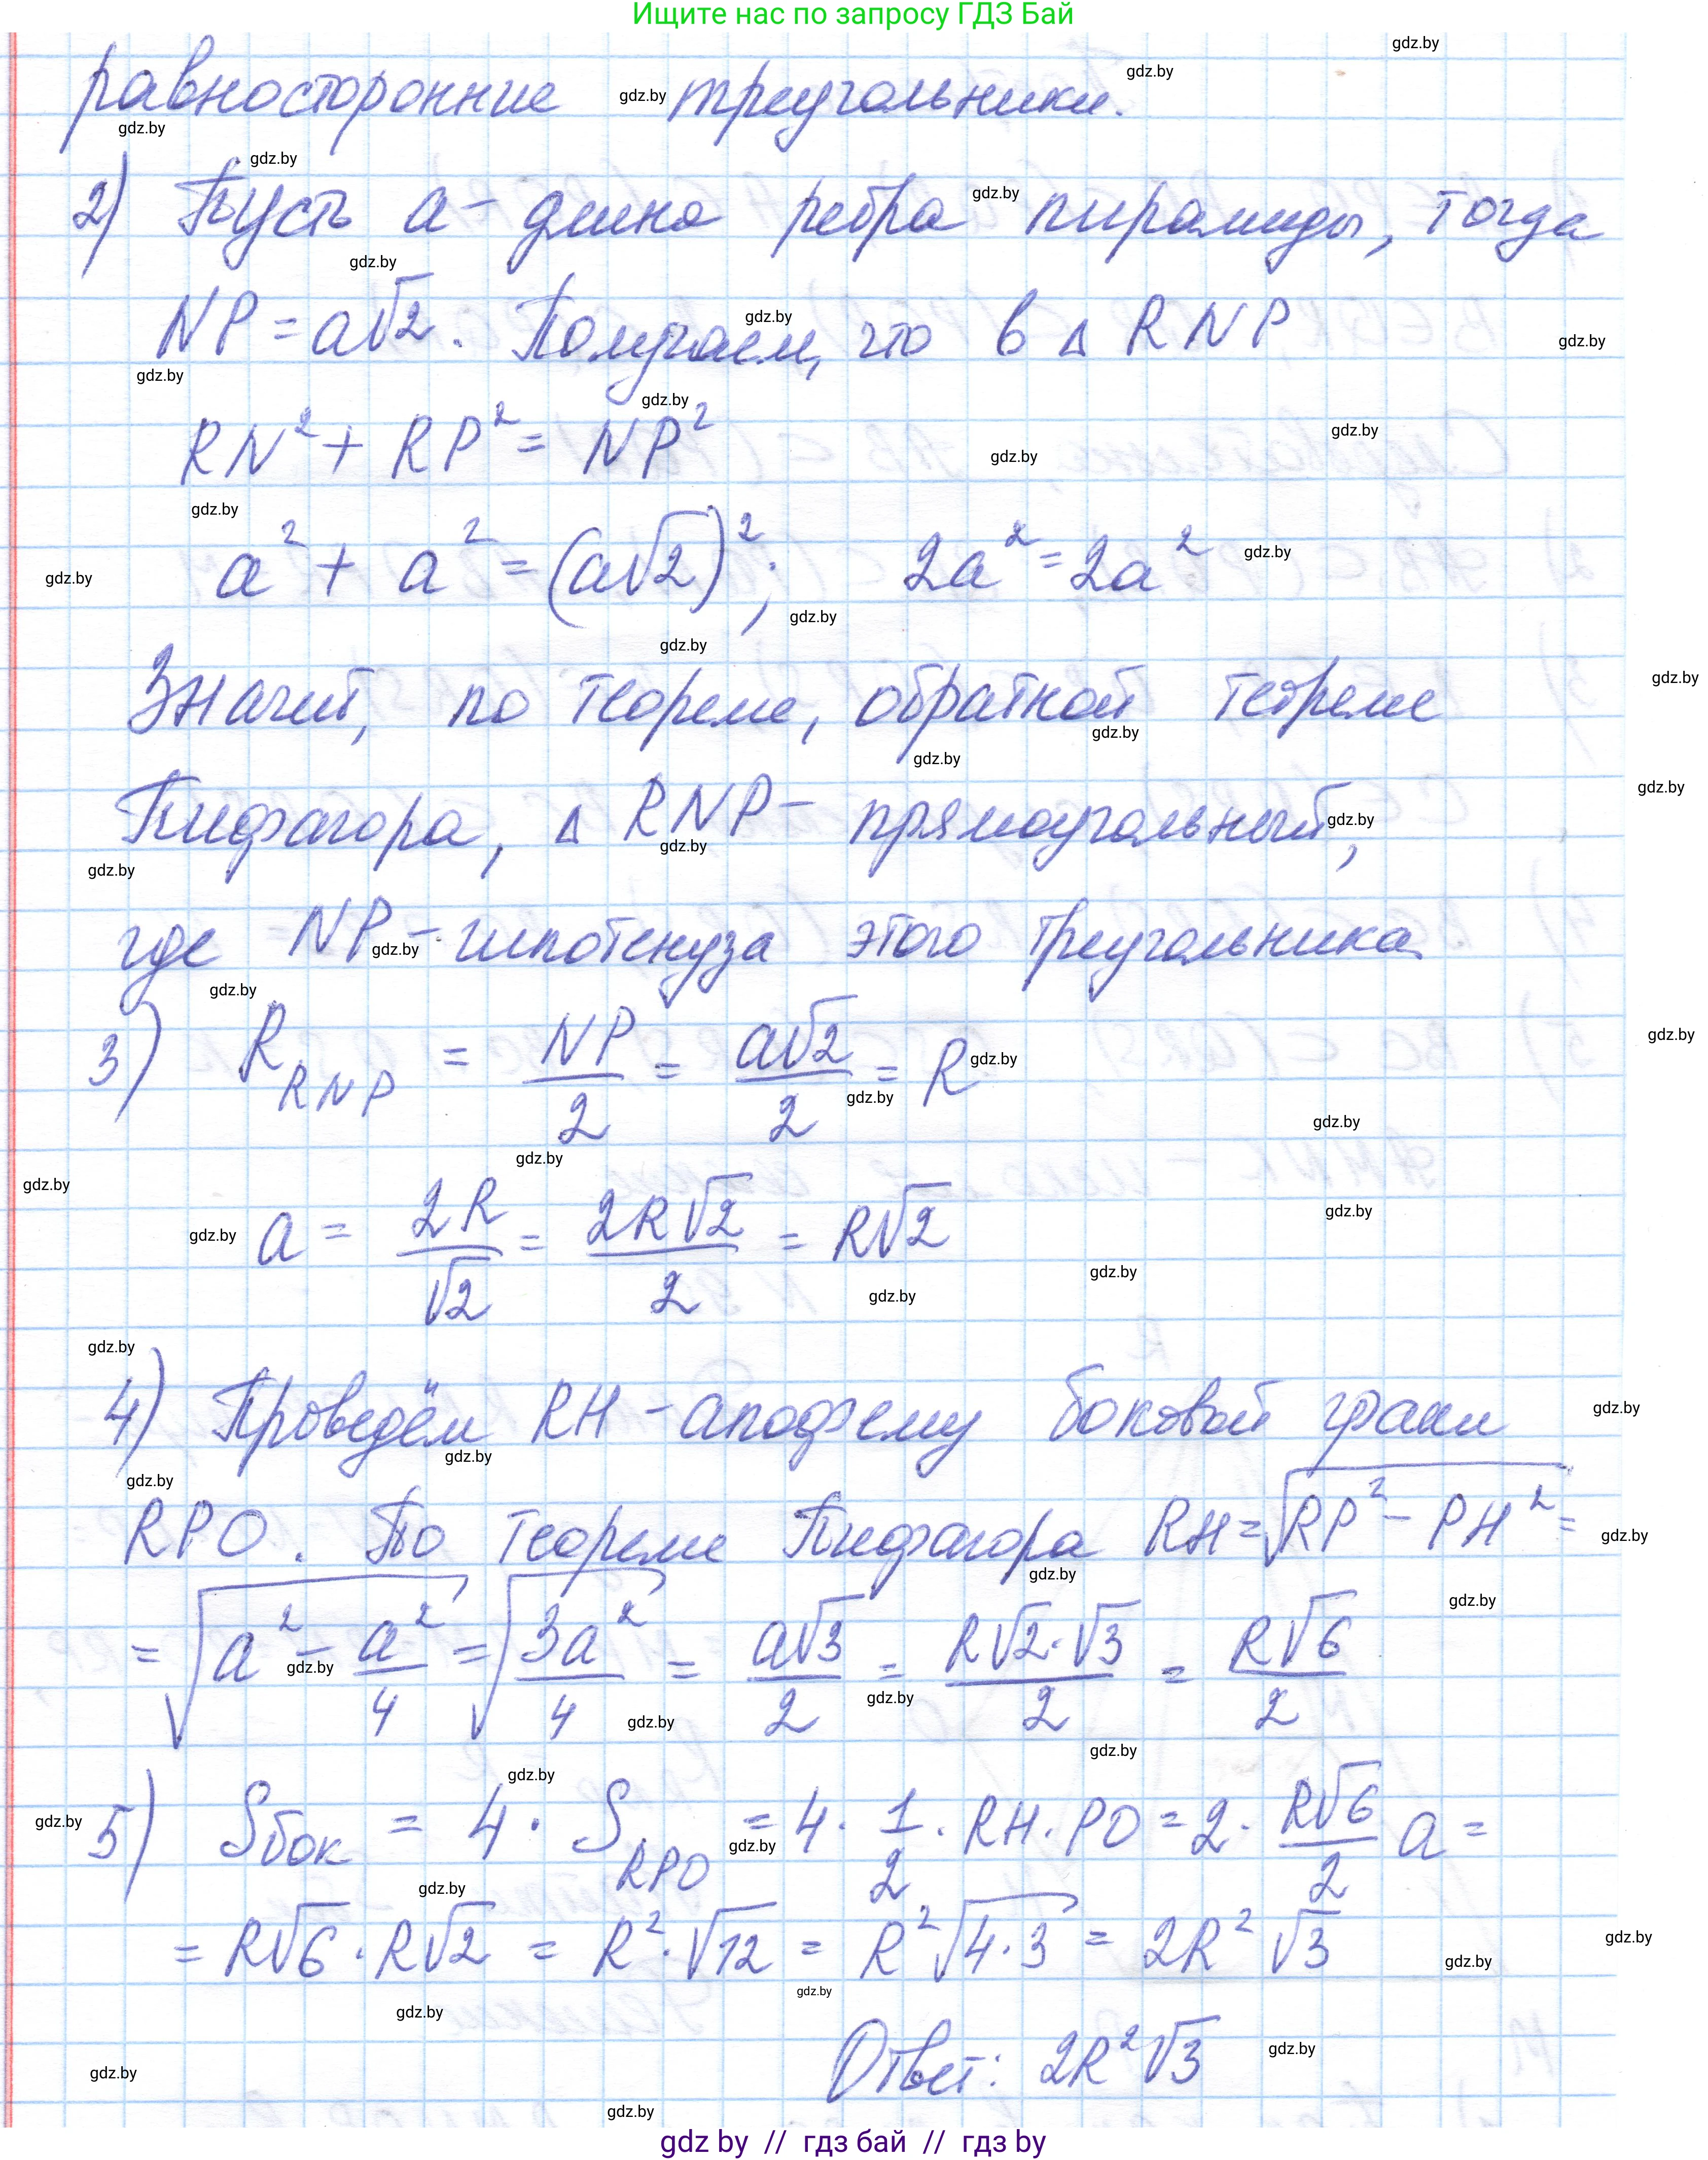 Ищите нас по запросу ГДЗ Бай
равносторонние треугольники.
2) Пусть a - длина ребра пирамиды, тогда
NP = a√2. Получаем, что в △ RNP
RN² + RP² = NP²
a² + a² = (a√2)²; 2a² = 2a²
Значит, по теореме, обратной теореме
Пифагора, △ RNP - прямоугольный,
где NP - гипотенуза этого треугольника.
3) R_RNP = NP/2 = a√2/2 = R
a = 2R/√2 = 2R√2/2 = R√2
4) Проведём RH - апофему боковой грани
RPO. По теореме Пифагора RH = √(RP² - PH²) =
= √(a² - a²/4) = √(3a²/4) = a√3/2 = R√2·√3/2 = R√6/2
5) Sбок = 4 · S_RPO = 4 · 1/2 · RH · PO = 2 · R√6/2 a =
= R√6 · R√2 = R² · √12 = R²√(4·3) = 2R²√3
Ответ: 2R²√3
gdz by // гдз бай // гдз by